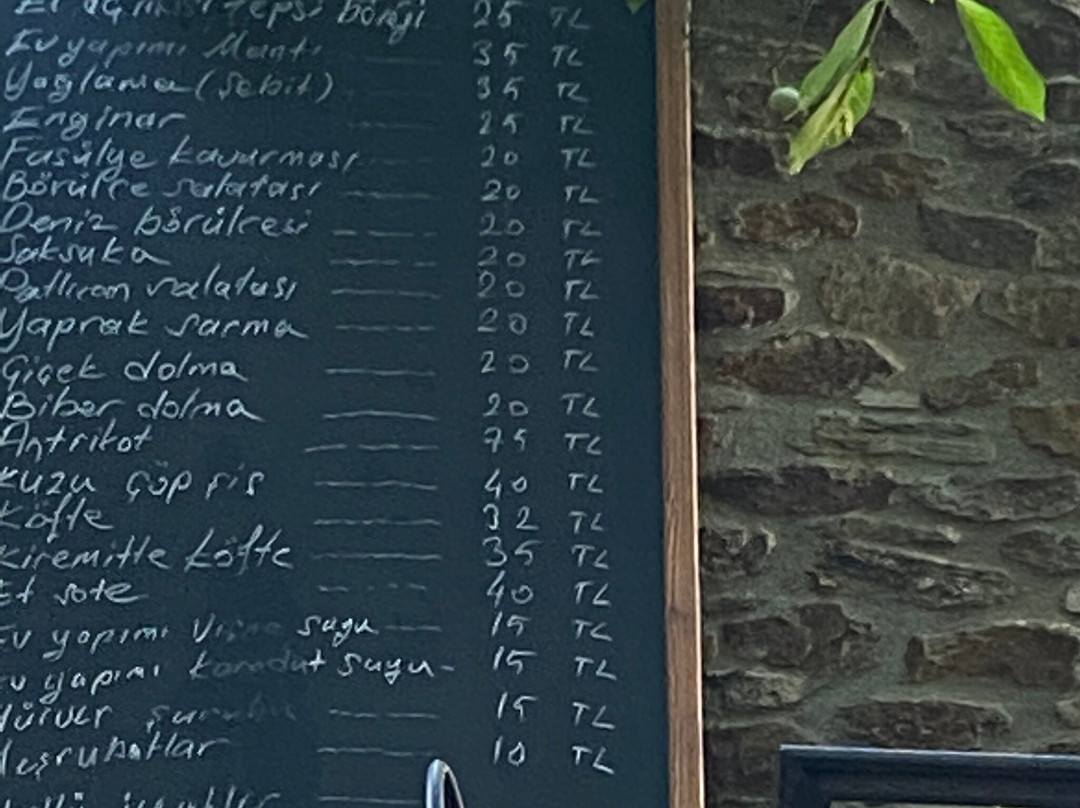 El açması tepsi böreği 25 TL
Ev yapımı Mantı 35 TL
Yağlama (Şebit) 35 TL
Enginar 25 TL
Fasülye kavurması 20 TL
Börülce salatası 20 TL
Deniz börülcesi 20 TL
Şakşuka 20 TL
Patlıcan salatası 20 TL
Yaprak sarma 20 TL
Çiçek dolma 20 TL
Biber dolma 20 TL
Antrikot 75 TL
Kuzu çöp şiş 40 TL
Köfte 32 TL
Kiremitte köfte 35 TL
Et sote 40 TL
Ev yapımı Vişne suyu 15 TL
Ev yapımı Karadut suyu - 15 TL
Mürver şurubu 15 TL
Meşrubatlar 10 TL